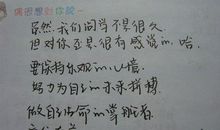 偶很想對你說
虽然我们同学不是很久
但对你还是很有感觉的.哈.
要保持乐观的心境
努力为自己的未来拼搏
做自己生命的掌舵者